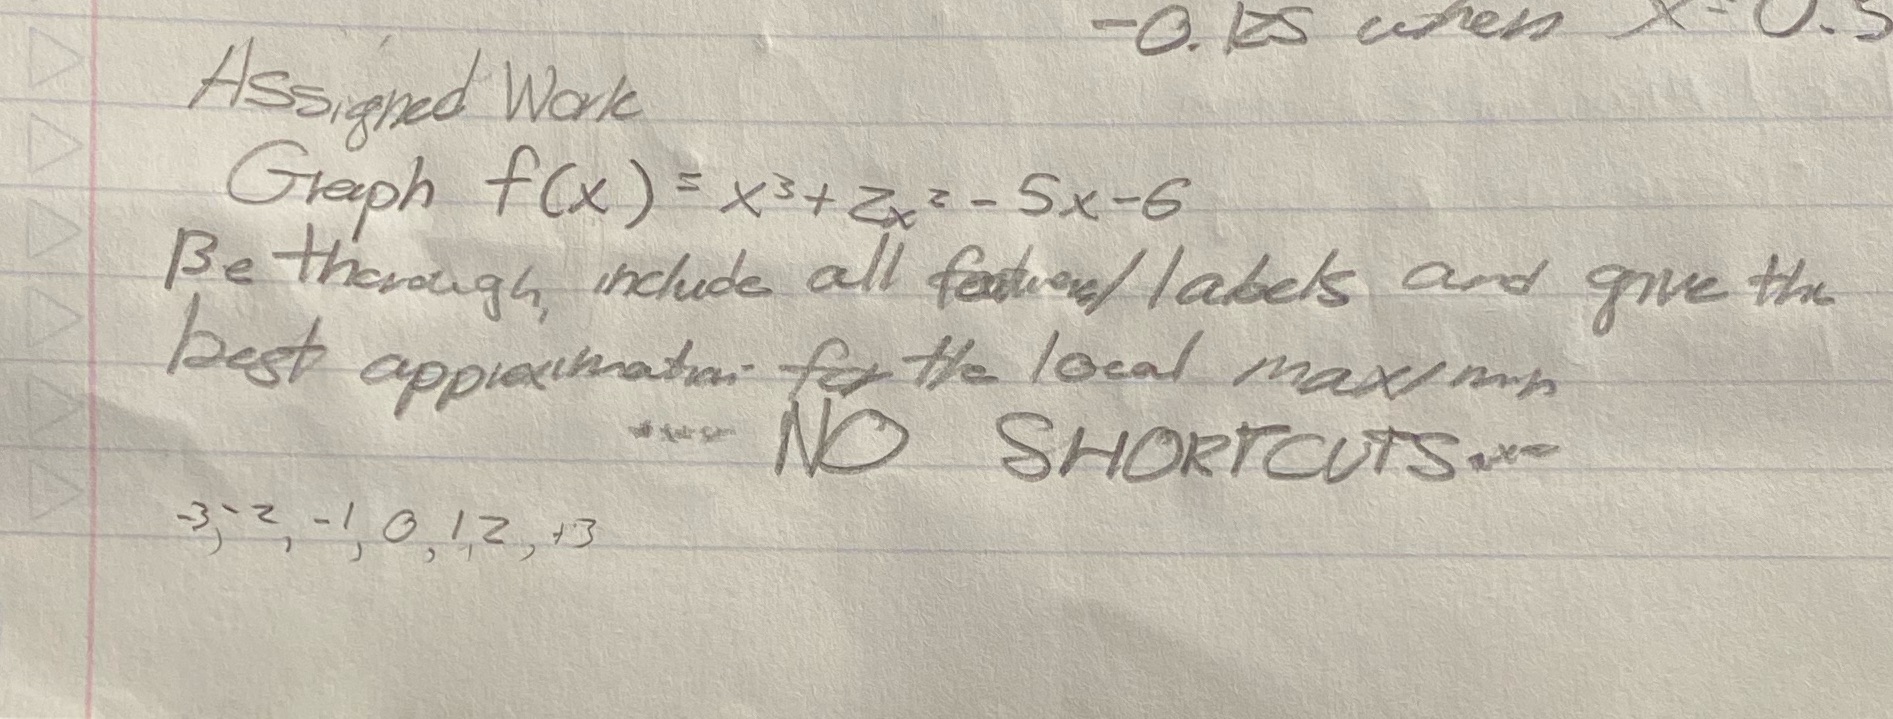 -0.125 when x=0.5
Assigned Work
Graph f(x) = x³+2x²-5x-6
Be thorough, include all features/labels and give the
best approximation for the local max/min
**** NO SHORTCUTS
-3,-2, -1, 0, 1, 2, +3